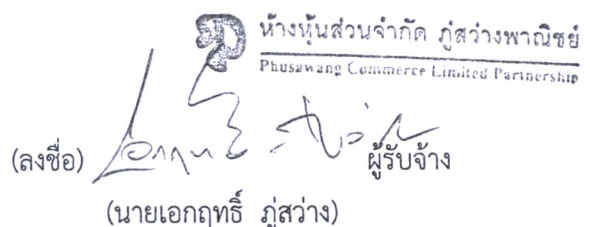 ห้างหุ้นส่วนจำกัด ภู่สว่างพาณิชย์
Phusawang Commerce Limited Partnership
(ลงชื่อ) ผู้รับจ้าง
(นายเอกฤทธิ์ ภู่สว่าง)